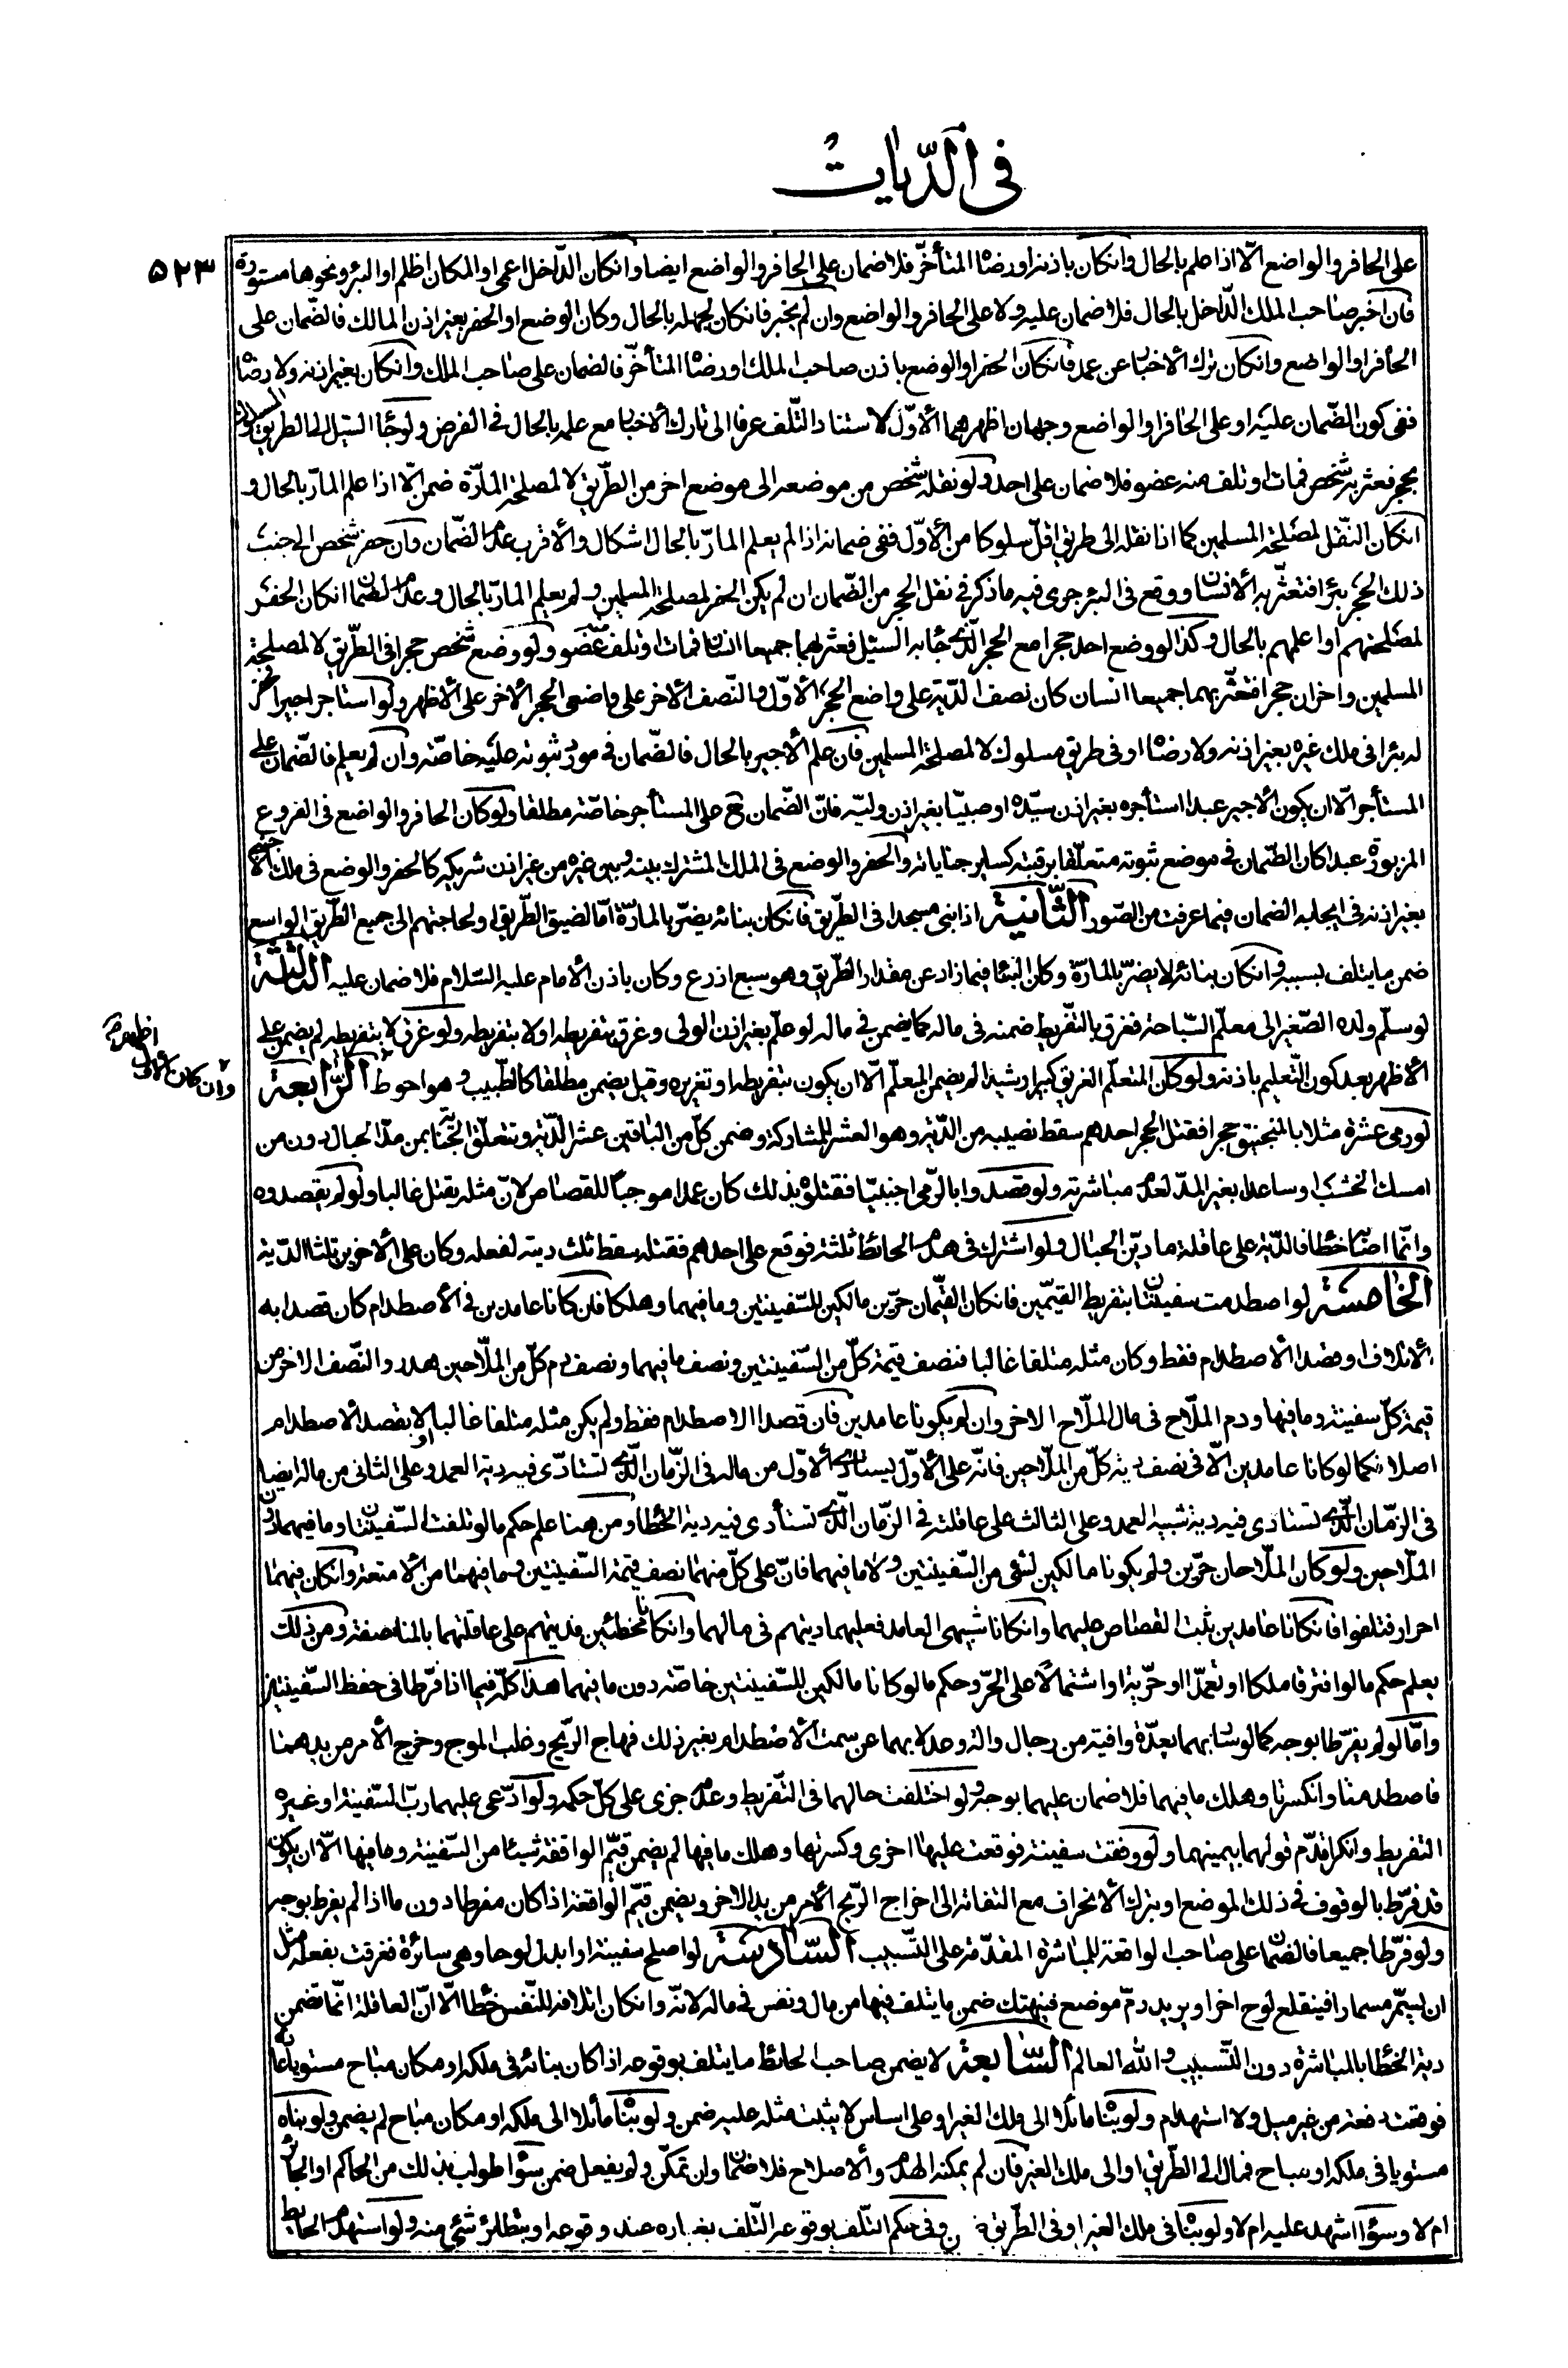 في الديات
۵۲۳
على الحافر والواضع الّا اذا علم بالحال وانكان باذنه او رضاه المتأخّر فلا ضمان على الحافر والواضع ايضا وانكان الدّاخل اعمى او المكان اظلم او البئر ونحوها مستورة
فان اخبر صاحب الملك الدّاخل بالحال فلا ضمان عليه ولا على الحافر والواضع وان لم يخبر فانكان لجهله بالحال وكان الوضع او الحفر بغير اذن المالك فالضّمان على
الحافر او الواضع وانكان ترك الأخبار عن عمد فانكان الحفر او الوضع باذن صاحب الملك او رضاه المتأخّر فالضمان على صاحب الملك وانكان بغير اذنه ولا رضاه
ففى كون الضّمان عليه او على الحافر او الواضع وجهان اظهرهما الأوّل لاستناد التّلف عرفا الى تارك الأخبار مع علمه بالحال في الفرض ولو جاء السّيل الى الطريق المسلوك
بحجر فعثر به شخص فمات او تلف منه عضو فلا ضمان على احد ولو نقله شخص من موضعه الى موضع اخر من الطّريق لا لمصلحة المارّة ضمن الّا اذا علم المارّ بالحال و
انكان النّقل لمصلحة المسلمين كما اذا نقله الى طريق اقلّ سلوكا من الأوّل ففى ضمانه اذا لم يعلم المارّ بالحال اشكال والأقرب عدم الضّمان وان حفر شخص الى جنب
ذلك الحجر بئرا فتعثّر به الأنسان ووقع فى البئر جرى فيه ما ذكر في نقل الحجر من الضّمان ان لم يكن الحفر لمصلحة المسلمين ولم يعلم المارّ بالحال وعدم الضمان انكان الحفر
لمصلحتهم او اعلمهم بالحال وكذا لو وضع احد حجرا مع الحجر الّذى جاء به السّيل فعثر بهما جميعا انسان فمات او تلف منه عضو ولو وضع شخص حجرا فى الطّريق لا لمصلحة
المسلمين واخران حجرا فتعثّر بهما جميعا انسان كان نصف الدّية على واضع الحجر الأوّل والنّصف الأخر على واضعى الحجر الأخر على الأظهر ولو استاجر اجيرا فحفر
له بئرا فى ملك غيره بغير اذنه ولا رضاه او فى طريق مسلوك لا لمصلحة المسلمين فان علم الأجير بالحال فالضّمان فى مورد ثبوته عليه خاصّة وان لم يعلم فالضّمان على
المستأجر الّا ان يكون الأجير عبدا استأجره بغير اذن سيّده او صبيّا بغير اذن وليّه فانّ الضّمان ح على المستأجر خاصّة مطلقا ولو كان الحافر والواضع فى الفروع
المزبورة عبدا كان الضّمان في موضع ثبوته متعلّقا برقبته كساير جناياته والحفر والوضع فى الملك المشترك بينه وبين غيره من غير اذن شريكه كالحفر والوضع فى ملك الأجنبى
بغير اذنه فى ايجابه الضمان فيما عرفت من الصّور الثّانية اذا بنى مسجدا فى الطّريق فانكان بنائه يضرّ بالمارّة امّا لضيق الطّريق او لحاجتهم الى جميع الطّريق الواسع
ضمن ما يتلف بسببه وانكان بنائه لا يضرّ بالمارّة وكان البناء فيما زاد عن مقدار الطّريق وهو سبع اذرع وكان باذن الأمام عليه السّلام فلا ضمان عليه الثالثة
لو سلّم ولده الصّغير الى معلّم السّباحة فغرق بالتّفريط ضمنه فى ماله كما يضمن في ماله لو علّم بغير اذن الولى وغرق بتفريطه او لا بتفريطه ولو غرق لا بتفريطه لم يضمن على
الأظهر بعد كون التّعليم باذنه ولو كان المتعلّم الغريق كبيرا رشيدا لم يضمن المعلّم الّا ان يكون بتفريطه او تغريره وقيل يضمن مطلقا كالطّبيب وهو احوط الرّابعة
وان كان الأوّل اظهر
لو رمى عشرة مثلا بالمنجنيق حجرا فقتل الحجر احدهم سقط نصيبه من الدّية وهو العشر للمشاركة وضمن كلّ من الباقين عشر الدّية وتتعلّق الجناية بمن مدّ الحبال دون من
امسك الخشب او ساعد بغير المدّ لعدم مباشرته ولو قصدوا بالرّمى اجنبيّا فقتلوه بذلك كان عمدا موجبا للقصاص لانّ مثله يقتل غالبا ولو لم يقصدوه
وانّما اصابه خطأ فالدّية على عاقلة مادّين الحبال ولو اشترك فى هدم الحائط ثلثة فوقع على احدهم فقتله سقط ثلث ديته لفعله وكان على الأخرين ثلثا الدّية
الخامسة لو اصطدمت سفينتان بتفريط القيّمين فانكان القيّمان حرّين مالكين للسّفينتين وما فيهما وهلكا فان كانا عامدين فى الأصطدام كان قصدا به
الأتلاف او قصدا الأصطدام فقط وكان مثله متلفا غالبا فنصف قيمة كلّ من السّفينتين ونصف ما فيهما ونصف دم كلّ من الملّاحين هدر والنّصف الاخر من
قيمة كلّ سفينة وما فيها ودم الملّاح فى مال الملّاح الاخر وان لم يكونا عامدين فان قصدا الاصطدام فقط ولم يكن مثله متلفا غالبا او لا بقصد الأصطدام
اصلا فكما لو كانا عامدين الّا فى نصف دية كلّ من الملّاحين فانّه على الأوّل يستادى الأوّل من ماله فى الزّمان الّذى تستادّى فيه دية العمد وعلى الثانى من ماله ايضا
فى الزّمان الّذى تستادى فيه دية شبيه العمد وعلى الثالث على عاقلته في الزّمان الّذى تستأدى فيه دية الخطأ ومن هنا علم حكم ما لو تلفت السّفينتان وما فيهما دون
الملّاحين ولو كان الملّاحان حرّين ولم يكونا مالكين لشئ من السّفينتين ولا ما فيهما فانّ على كلّ منهما نصف قيمة السّفينتين وما فيهما من الأمتعة وانكان فيهما
احرار فتلفوا فانكانا عامدين ثبت القصاص عليهما وانكانا شبيهى العامد فعليهما ديتهم فى مالهما وانكانا مخطئين فديتهم على عاقلتهما بالمناصفة ومن ذلك
يعلم حكم ما لو افترقا ملكا او تعمّدا او حرّية او اشتملا على الحرّ وحكم ما لو كانا مالكين للسّفينتين خاصّة دون ما فيهما هذا كلّه فيما اذا فرّطا فى حفظ السّفينتين
وامّا لو لم يفرّطا بوجه كما لو سارا بهما بعدّة وافية من رجال والة وعدلا بهما عن سمت الأصطدام بغير ذلك فهاج الرّيح وغلب الموج وخرج الأمر من يدهما
فاصطدمتا وانكسرتا وهلك ما فيهما فلا ضمان عليهما بوجه ولو اختلفت حالهما فى التّفريط وعدمه جرى على كلّ حكمه ولو ادّعى عليهما ربّ السّفينة او غيره
التفريط وانكرا قدّم قولهما بيمينهما ولو وقفت سفينة فوقعت عليها اخرى وكسرتها وهلك ما فيها لم يضمن قيّم الواقفة شيئا من السّفينة وما فيها الّا ان يكون
قد فرّط بالوقوف في ذلك الموضع او بترك الأنحراف مع التفاته الى اخراج الرّيح الأمر من يد الاخر ويضمن قيّم الواقعة اذا كان مفرطا دون ما اذا لم يفرط بوجه
ولو فرّطا جميعا فالضمان على صاحب الواقعة للمباشرة المقدّمة على التّسبيب السّادسة لو اصلح سفينة او ابدل لوحا وهى سائرة فغرقت بفعله مثل
ان يسمّر مسمارا فينقلع لوح اخر او يريد رمّ موضع فينهتك ضمن ما يتلف فيها من مال ونفس فى ماله لانّه وانكان اتلافه للنّفس خطأ الّا انّ العاقلة انّما تضمن
دية الخطأ بالمباشرة دون التّسبيب والله العالم السّابعة لا يضمن صاحب الحائط ما يتلف بوقوعه اذا كان بنائه فى ملكه او مكان مباح مستويا
فوقعت دفعة من غير ميل ولا استهدام ولو بناه مائلا الى ملك الغير او على اساس لا يثبت مثله عليه ضمن ولو بناه مائلا الى ملكه او مكان مباح لم يضمن ولو بناه
مستويا فى ملكه او مباح فمال الى الطّريق او الى ملك الغير فان لم يمكنه الهدم والأصلاح فلا ضمان وان تمكّن ولم يفعل ضمن سواء طولب بذلك من الحاكم او الجار
ام لا وسواء اشهد عليه ام لا ولو بناه فى ملك الغير او فى الطّريق وفى حكم التّلف بوقوعه التّلف بغباره عند وقوعه او بتطاير شئ منه ولو استهدم الحايط